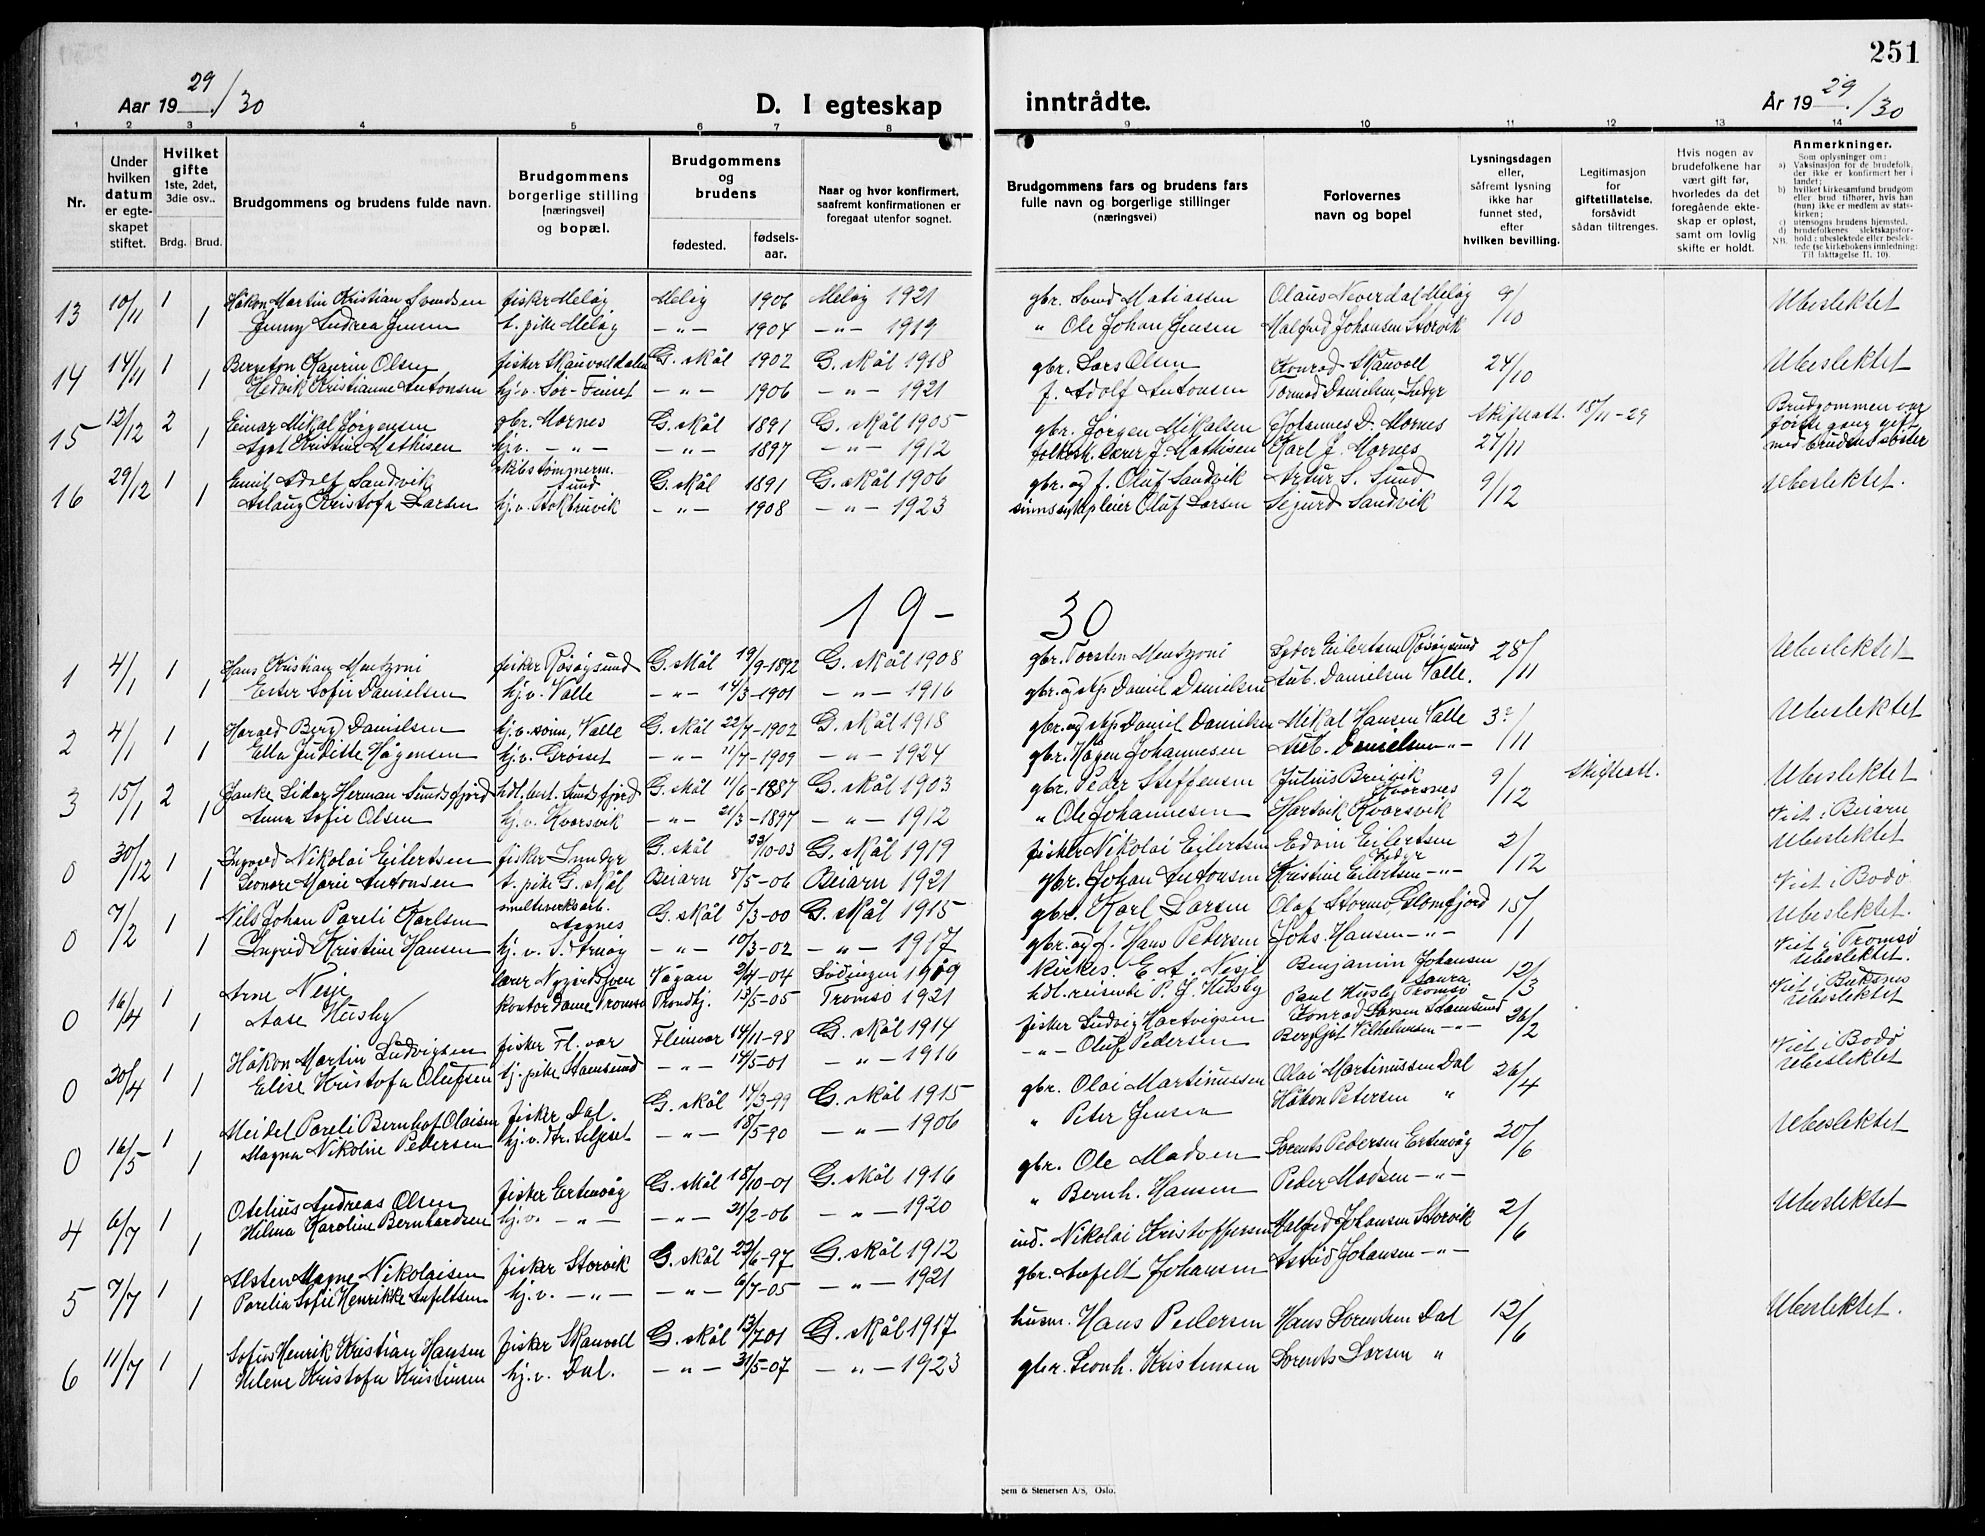 251
Aar 19 29/30
D. I egteskap
inntrådte.
År 19 29/30
1 2 3 4 5 6 7 8 9 10 11 12 13 14
Nr.
Under hvilken datum er egteskapet stiftet.
Hvilket gifte 1ste, 2det, 3die osv..
Brdg. Brud.
Brudgommens og brudens fulde navn.
Brudgommens borgerlige stilling (næringsvei) og bopæl.
Brudgommens og brudens
fødested. fødsels-aar.
Naar og hvor konfirmert, saafremt konfirmationen er foregaat utenfor sognet.
Brudgommens fars og brudens fars fulle navn og borgerlige stillinger (næringsvei)
Forlovernes navn og bopel
Lysningsdagen eller, såfremt lysning ikke har funnet sted, efter hvilken bevilling.
Legitimasjon for giftetillatelse. forsåvidt sådan tiltrenges.
Hvis nogen av brudefolkene har vært gift før, hvorledes da det foregående ekteskap er opløst, samt om lovlig skifte er holdt.
Anmerkninger.
Som oplysninger om:
a) Vaksinasjon for de brudefolk, der ikke er konfirmert her i landet;
b) hvilket kirkesamfund brudgom eller brud tilhører, hvis han (hun) ikke er medlem av statskirken;
c) utensogns brudens hjemsted.
d) brudefolkenes slektskapsforhold: ubeslektede eller beslektede (se kirkebokens innledning:
NB. Til iakttagelse II. 10).
13 10/11 1 Håkon Martin Kristian Svendsen fisker Meløy Meløy 1906 Meløy 1921 gbr. Svend Matiassen Olaus Neverdal Meløy 9/10 Ubeslektet
1 Jenny Andrea Jensen t. pike Meløy —„— 1904 —„— 1919 „ Ole Johan Jensen Halfred Johansen Storvik
14 14/11 1 Bergeton Kaurin Olsen fisker Skauvolldalen G. skål 1902 G. skål 1918 gbr. Lars Olsen Konrad Skauvoll 24/10 Ubeslektet
1 Hedvik Kristianne Antonsen hj.v. Sør-Finset —„— 1906 —„— 1921 f. Adolf Antonsen Tormod Danielsen, Inndyr
15 12/12 2 Einar Mikal Jørgensen gbr. Mornes G. skål 1891 G. skål 1905 gbr. Jørgen Mikalsen Johannes D. Mornes Skifteatt. 18/11-29 Brudgommen var
1 Agot Kristine Mathisen hj.v. —„— —„— 1897 —„— 1912 folkesk. lærer J. Mathisen Karl J. Mornes 27/11 første gang gift
med brudens søster
16 29/12 1 Emil Adolf Sandvik skibstømmerm. Sund G. skål 1891 G. skål 1906 gbr. og f. Oluf Sandvik Artur S. Sund 9/12 Ubeslektet.
1 Aslaug Kristofa Larsen hj.v. Stoktuvik —„— 1908 —„— 1923 sinnssykepleier Oluf Larsen Sigurd Sandvik
19-30
1 4/1 1 Hans Kristian Mentzoni fisker Røsøysund G. skål 19/9-1892 G. skål 1908 gbr. Torsten Mentzoni Peder Eilertsen Røsøysund 28/11 Ubeslektet
1 Ester Sofie Danielsen hj.v. Valle —„— 14/3-1901 —„— 1916 gbr. og skp. Daniel Danielsen Anb. Danielsen Valle.
2 4/1 1 Harald Berg Danielsen hj.v. sønn, Valle G. skål 22/7-1902 G. skål 1918 gbr. og skp. Daniel Danielsen Mikal Hansen Valle 3º/11 Ubeslektet
1 Ella Juditte Hågensen hj.v. Grøset —„— 11/7-1909 —„— 1924 gbr. Hågen Johannesen Anb. Danielsen —„—
3 15/1 2 Janke Sidar Herman Sundsfjord hdl.best. Sundsfjord G. skål 11/6-1887 G. skål 1903 gbr. Peder Steffensen Julius Breivik 9/12 Skifteatt. Ubeslektet
1 Anna Sofie Olsen hj.v. Kvarsvik —„— 21/3-1897 —„— 1912 „ Ole Johannesen Hartvik Kvarsvik
0 30/12 1 Ingvald Nikolai Eilertsen fisker Inndyr G. skål 23/10-03 G. skål 1919 fisker Nikolai Eilertsen Edvin Eilertsen Inndyr 2/12 Viet i Beiarn Ubeslektet
1 Leonore Marie Antonsen t. pike G. skål Beiarn 8/5-06 Beiarn 1921 gbr. Johan Antonsen Kristine Eilertsen —„—
0 7/2 1 Nils Johan Pareli Karlsen smelteverksarb. Aagnes G. skål 5/3-00 G. skål 1915 gbr. Karl Larsen Olaf Stormo, Glomfjord 15/1 Viet i Bodø Ubeslektet.
1 Ingrid Kristine Hansen hj.v. S. Arnøy —„— 10/3-02 —„— 1917 gbr. og f. Hans Pedersen Johs. Hansen —„—
0 16/4 1 Arne Nesje lærer Nygårdsjøen Vågan 2/4-04 Lødingen 1919 kirkes. E. A. Nesje Benjamin Johansen 12/3 Viet i Tromsø Ubeslektet.
1 Aase Husby kontordame Tromsø Trondhj. 13/5-05 Tromsø 1921 hdl.reisende P. J. Husby Paul Husby Tromsø
0 20/4 1 Håkon Martin Ludvigsen fisker Fl. vær Fleinvær 14/11-98 G. skål 1914 fisker Ludvig Hartvigsen Konrad Larsen Stamsund 26/2 Viet i Buksnes Ubeslektet
1 Elise Kristofa Olufsen hj. pike Stamsund —„— 14/5-01 —„— 1916 —„— Oluf Pedersen Bergljot Vilhelmsen —„—
0 16/5 1 Meidel Pareli Bernhof Olaisen fisker Dal. G. skål 14/3-99 G. skål 1915 gbr. Olai Martinussen Olai Martinussen Dal 26/4 Viet i Bodø Ubeslektet
1 Magna Nikoline Pedersen hj.v. dtr. Seljeset —„— 18/5-90 —„— 1906 „ Peter Jensen Håkon Petersen „
4 6/7 1 Otelius Andreas Olsen fisker Ertenvåg G. skål 18/10-01 G. skål 1916 gbr. Ole Madsen Lorents Pedersen Ertenvåg 20/6 Ubeslektet
1 Hilma Karoline Bernhardsen hj.v. —„— —„— 21/2-06 —„— 1920 „ Bernh. Hansen Peder Madsen —„—
5 7/7 1 Alsten Magne Nikolaisen fisker Storvik G. skål 22/6-97 G. skål 1912 ind. Nikolai Kristoffersen Halfred Johansen Storvik 2/6 Ubeslektet
1 Parelia Sofie Henrikke Anfeltsen hj.v. —„— —„— 6/7-05 —„— 1921 gbr. Anfelt Johansen Astrid Johansen —„—
6 11/7 1 Sofus Henrik Kristian Hansen fisker Skauvoll G. skål 13/7-01 G. skål 1917 husm. Hans Pedersen Hans Lorentsen Dal 12/6 Ubeslektet.
1 Helene Kristofa Kristensen hj.v. Dal. —„— 31/5-07 —„— 1923 gbr. Leonh. Kristensen Lorents Larsen „
Sem & Stenersen A/S, Oslo.